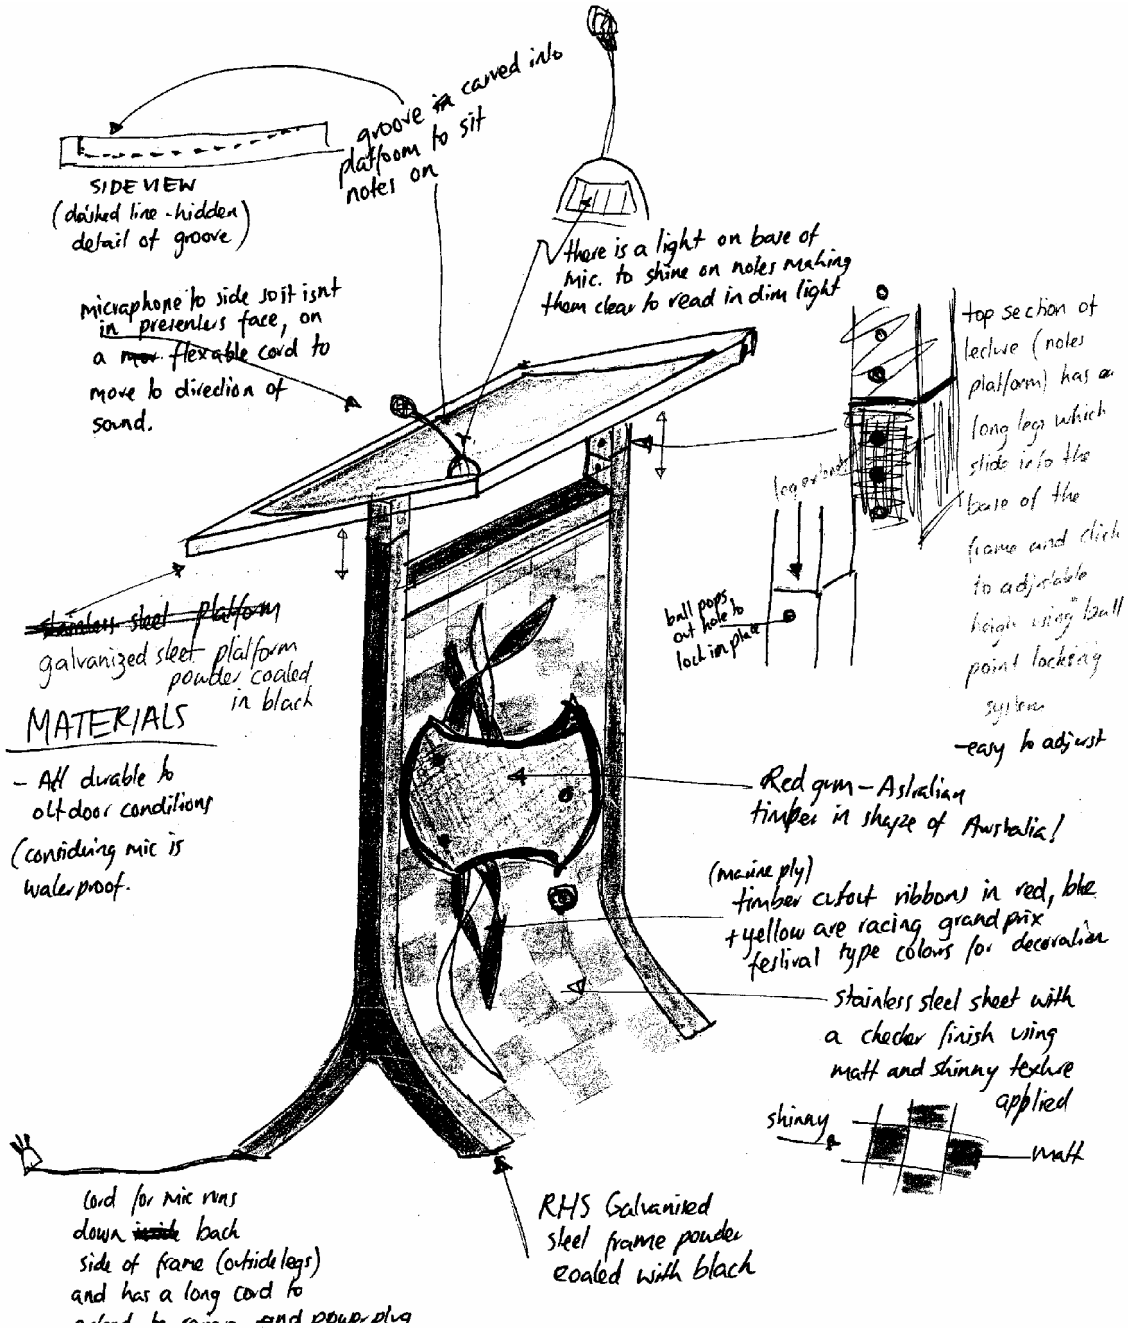 groove in carved into
platfoom to sit
notes on
SIDE VIEW
(dashed line - hidden)
detail of groove)
there is a light on base of
mic. to shine on notes making
them clear to read in dim light
micraphone to side so it isnt
in presenters face, on
a flexable cord to
move to direction of
sound.
top section of
lecture (notes
platform) has a
long legs which
slide into the
base of the
frame and click
to adjstable
heigh using ball
point locking
system
-easy to adjust
ball pops
out hole to
lock in place
stainless steel platform
galvanized steel platform
powder coated
in black
MATERIALS
- All durable to
outdoor conditions
(considering mic is
waterproof.
Red gum - Astralian
timber in shape of Australia!
(marine ply)
timber cutout ribbons in red, blue
+ yellow are racing grand prix
festival type colours for decoration
stainless steel sheet with
a checker finish using
matt and shinny texture
applied
shinny
matt
RHS Galvanised
steel frame powder
coated with black
cord for mic runs
down back
side of frame (outside legs)
and has a long cord to
and power plug